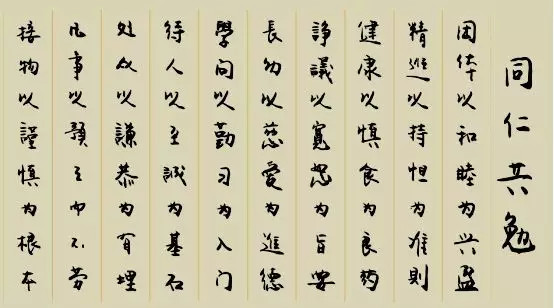 同仁共勉
团体以和睦为兴盛
精進以持恒为准則
健康以慎食为良药
諍議以寬恕为旨要
長幼以慈愛为進德
學问以勤习为入门
待人以至誠为基石
处众以謙恭为有理
凡事以預立而不劳
接物以謹慎为根本